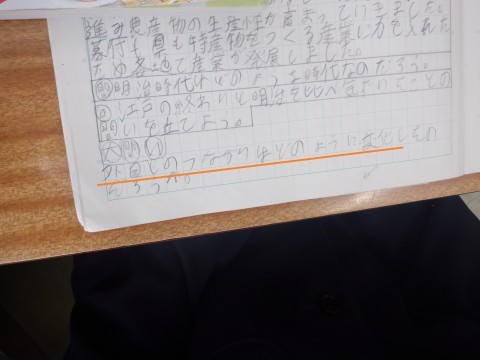 進み農産物の生産性が高まっていきました。
幕府も藩も特産物をつくる産業に力を入れた
ため各地で産業が発展しました。
明治時代はどのような時代なのだろう。
江戸の終わりと明治を比べ気づいたことの
問いを立てよう。
大問い
外国とのつながりはどのように変化したの
だろうか。